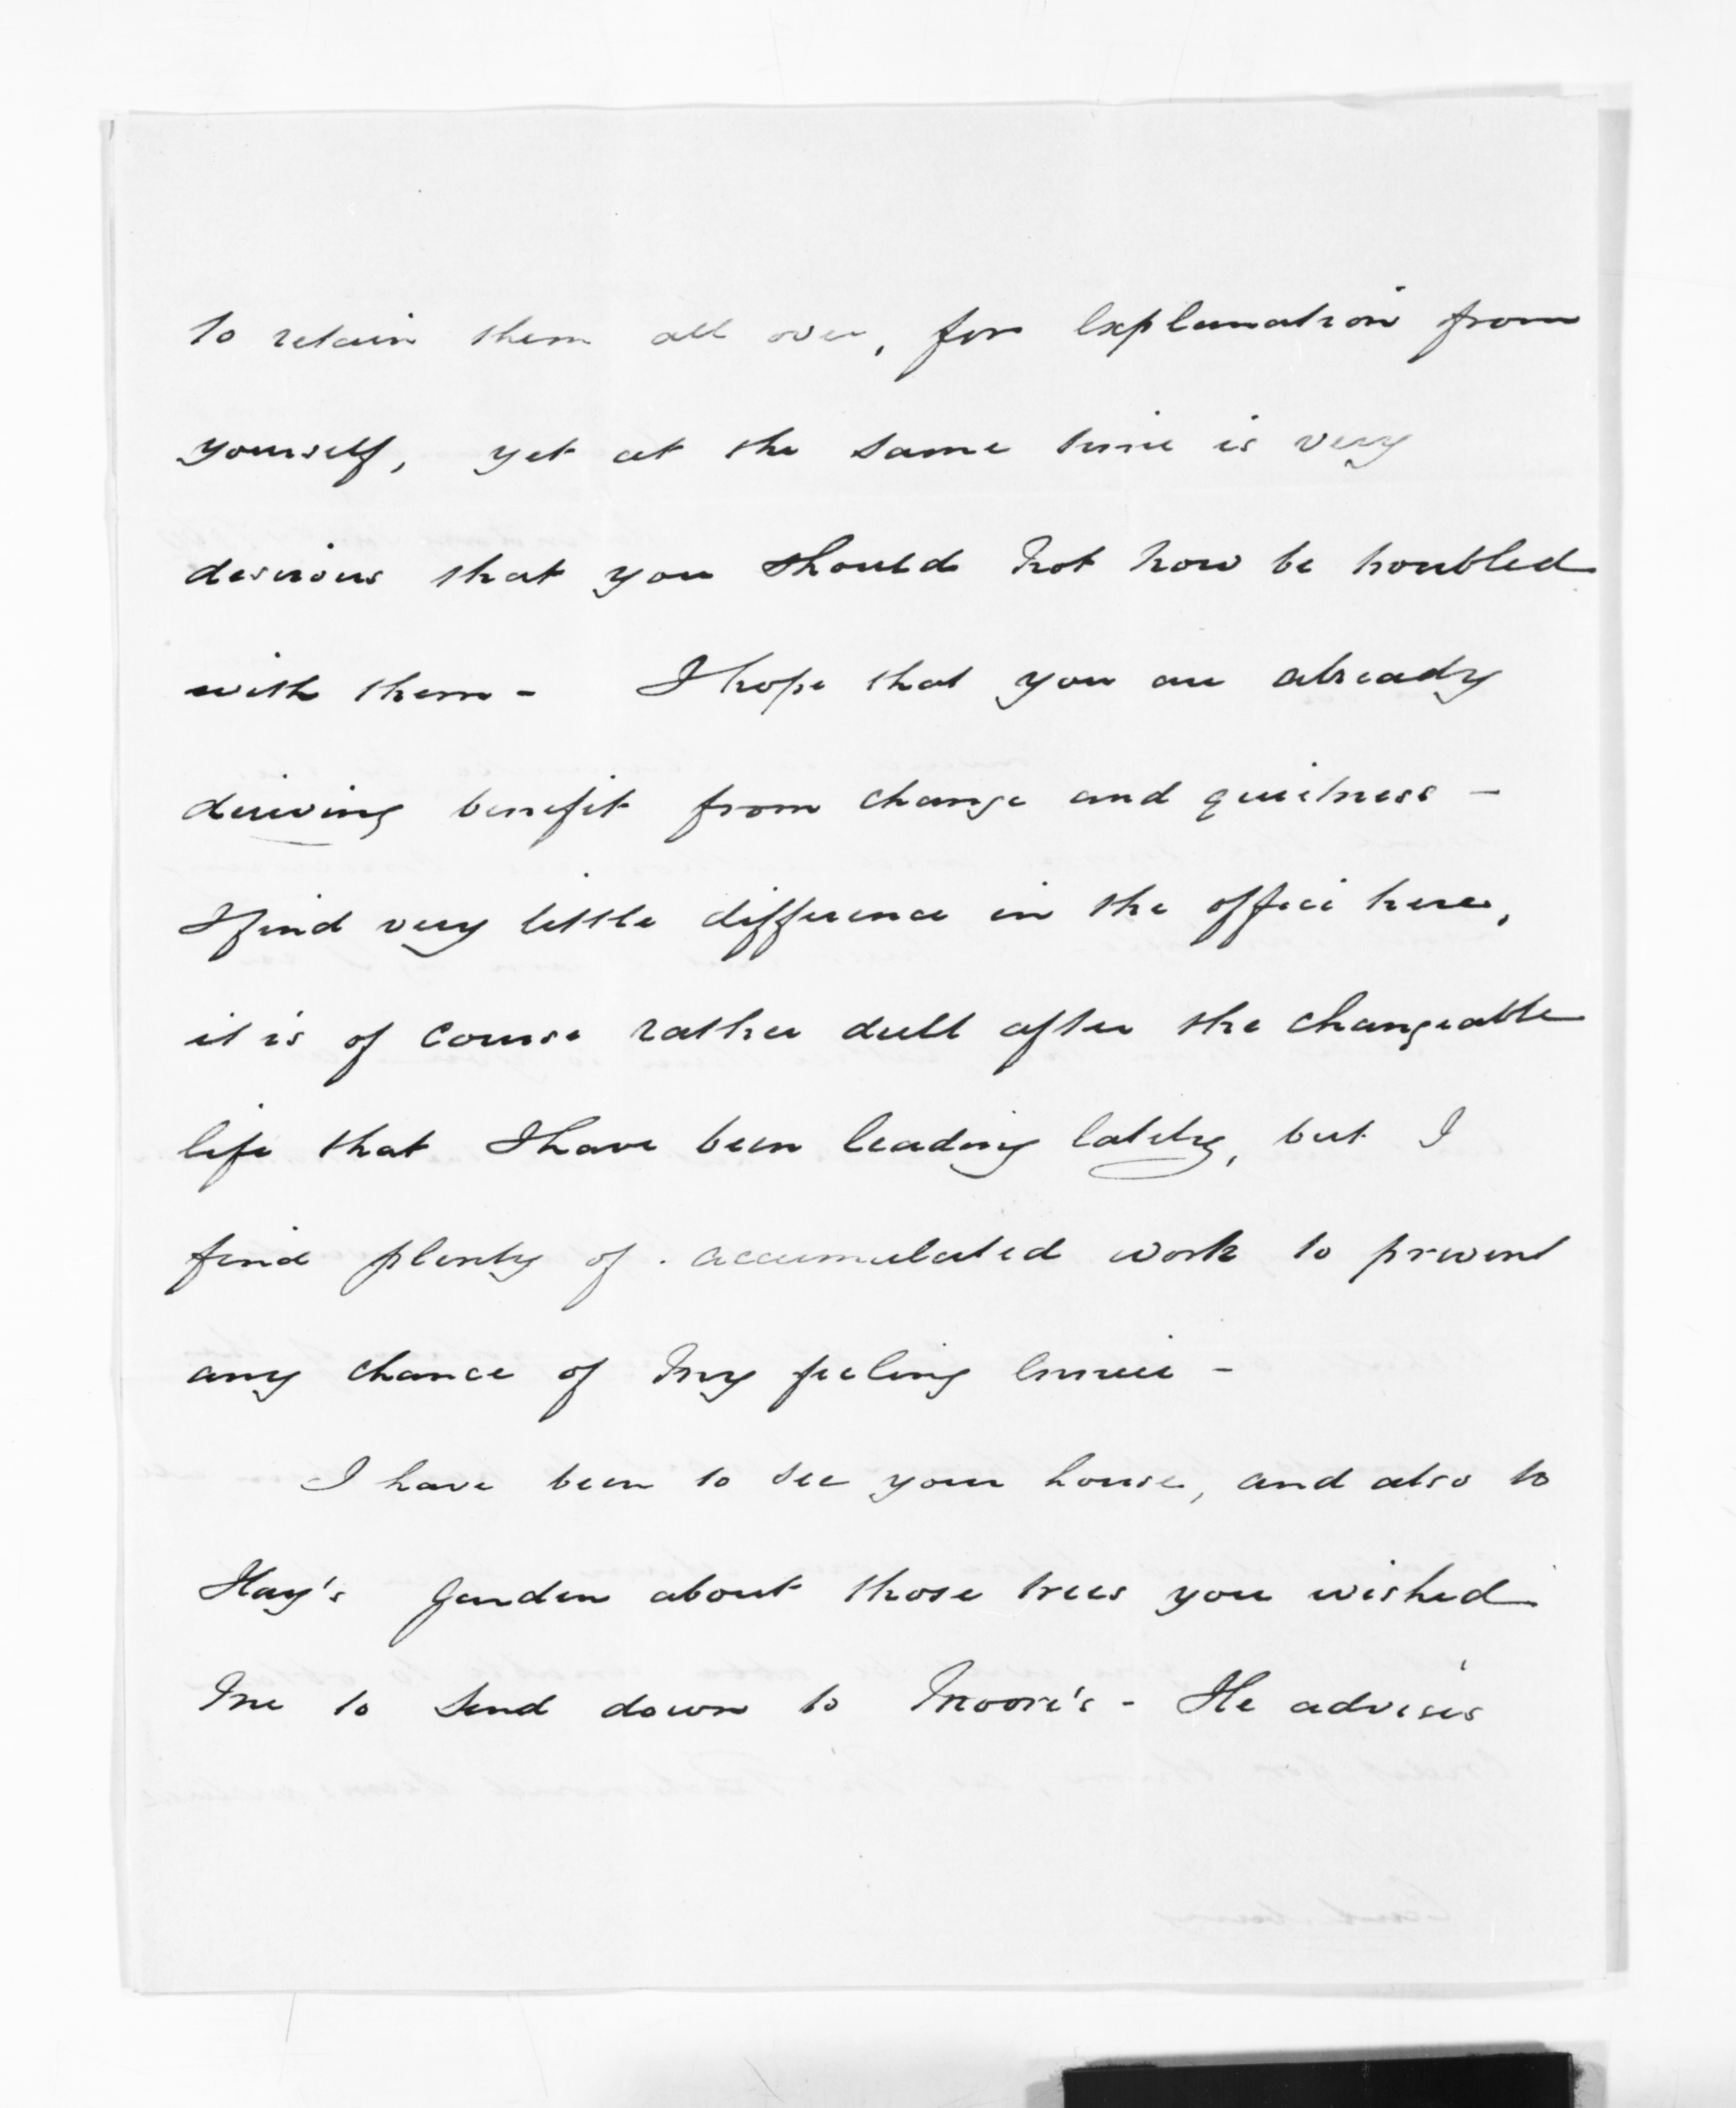 to retain them all over, for explanation from
yourself, yet at the same time is very
desirous that you should not now be troubled
with them - I hope that you are already
deriving benefit from change and quietness -
I find very little difference in the office here,
it is of course rather dull after the changeable
life that I have been leading lately, but I
find plenty of accumulated work to prevent
any chance of my feeling ennui -
I have been to see your house, and also to
Hay's Garden about those trees you wished
me to send down to Moore's - He advises